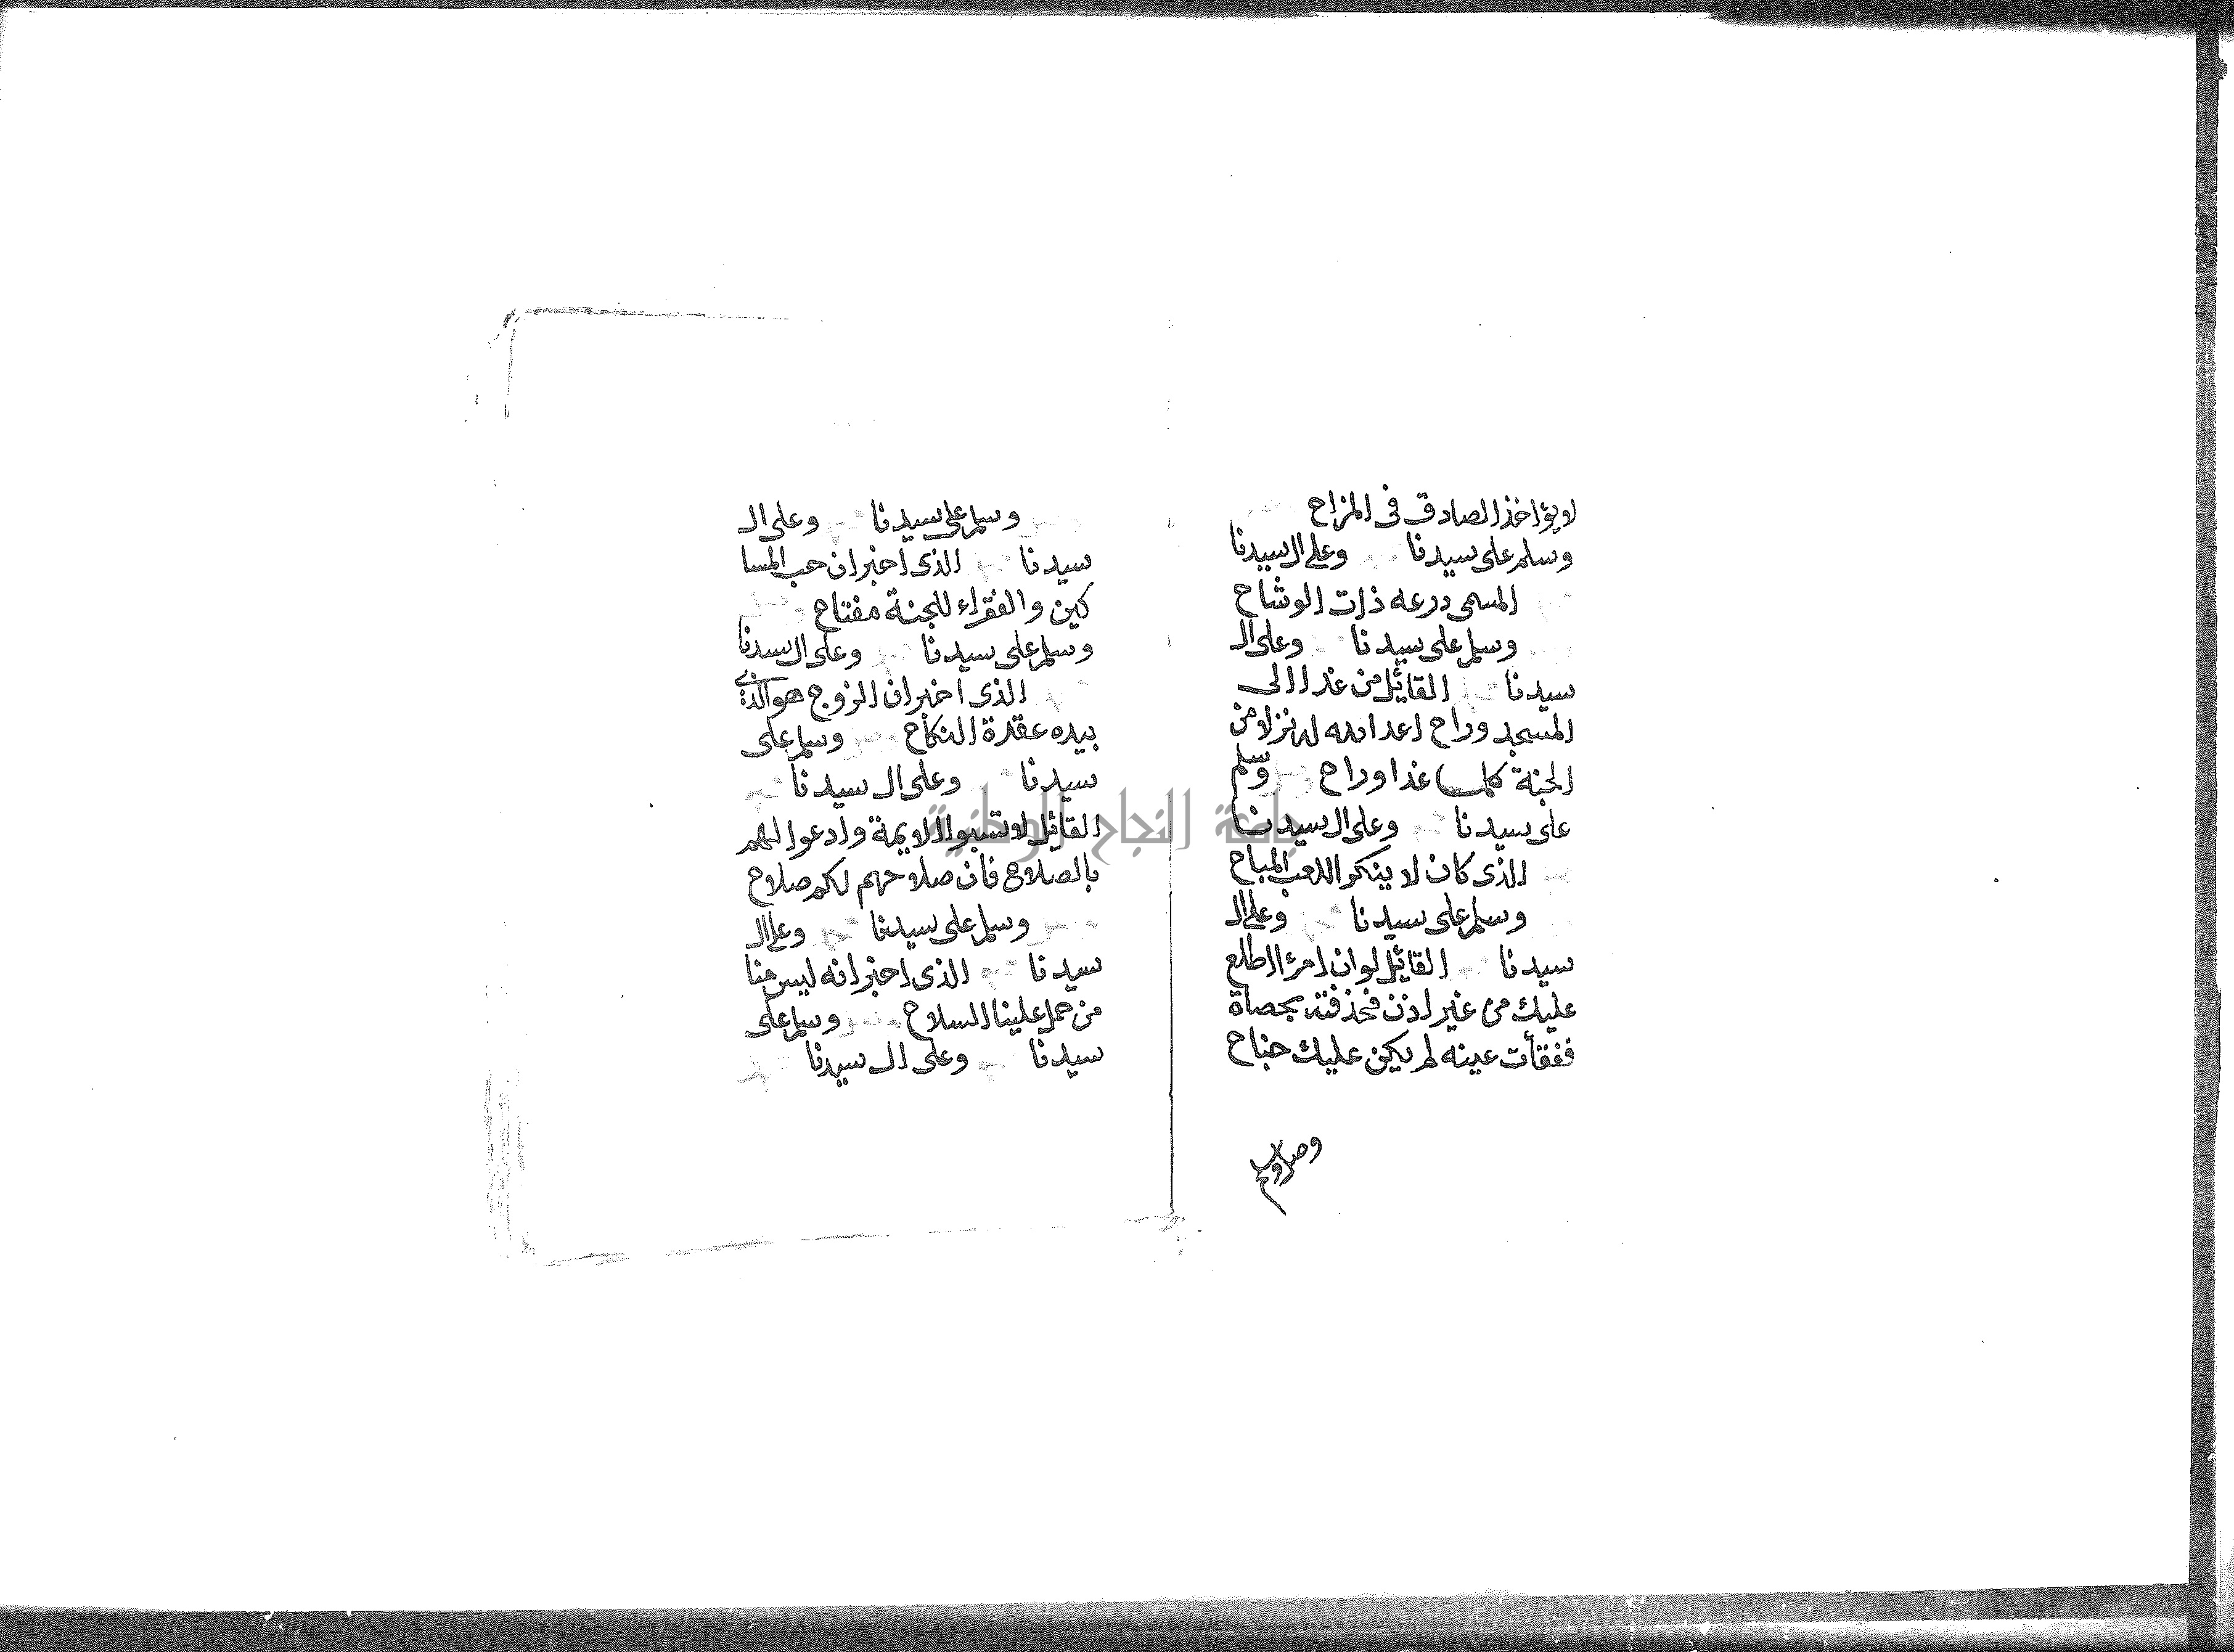 لا يؤاخذ الصادق فى المزاح
وسلم على سيدنا وعلى ال سيدنا
المسمى درعه ذات الوشاح
وسلم على سيدنا وعلى ال
سيدنا القائل من غدا الى
المسجد وراح اعد الله له نزلا من
الجنة كلما غدا وراح وسلم
على سيدنا وعلى ال سيدنا
الذى كان لا ينكر اللعب المباح
وسلم على سيدنا وعلى ال
سيدنا القائل لو ان امرئا اطلع
عليك من غير اذن فخذفته بحصاة
ففقأت عينه لم يكن عليك جناح
وسلم على سيدنا وعلى ال
سيدنا الذى اخبر ان حب المسا
كين والفقراء للجنة مفتاح
وسلم على سيدنا وعلى ال سيدنا
الذى اخبر ان الزوج هو الذى
بيده عقدة النكاح وسلم على
سيدنا وعلى ال سيدنا
القائل لا تسبوا الايمة وادعوا لهم
بالصلاح فان صلاحهم لكم صلاح
وسلم على سيدنا وعلى ال
سيدنا الذى اخبر انه ليس منا
من حمل علينا السلاح وسلم على
سيدنا وعلى ال سيدنا
جامعة النجاح الوطنية